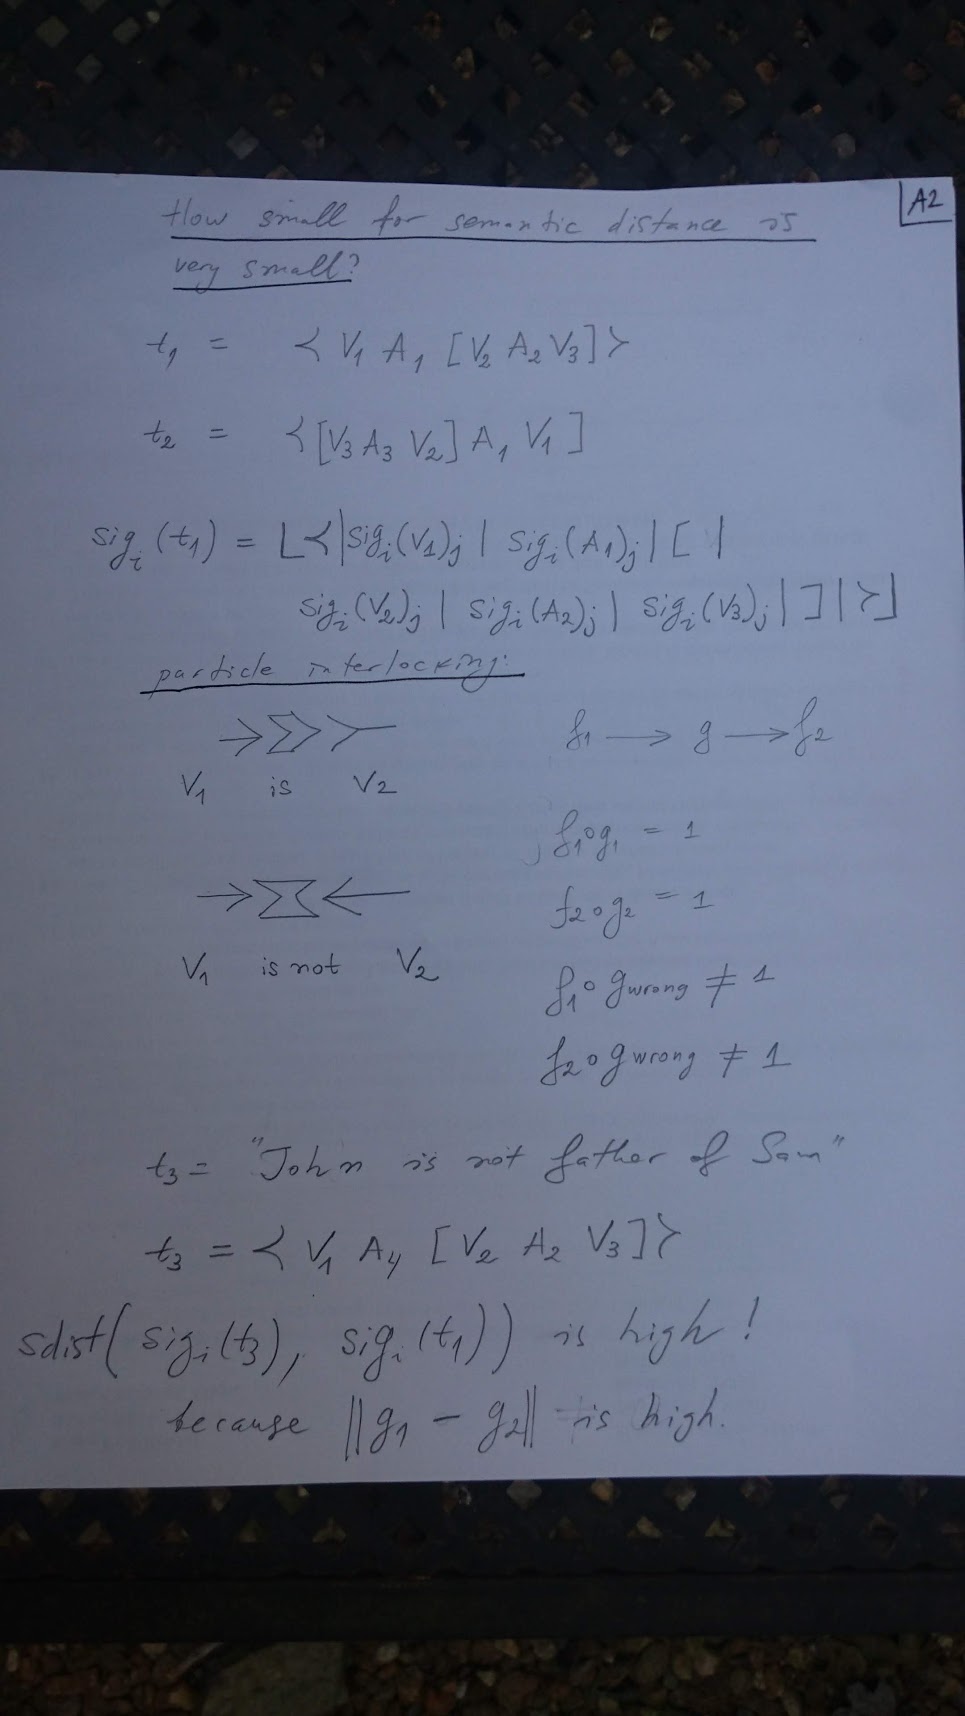 A2
How small for semantic distance is
very small?
t₁ = ≺ V₁ A₁ [V₂ A₂ V₃] ≻
t₂ = ≺ [V₃ A₃ V₂] A₁ V₁ ]
sigᵢ(t₁) = ⌊≺|sigᵢ(V₁)ⱼ | sigᵢ(A₁)ⱼ | [ |
sigᵢ(V₂)ⱼ | sigᵢ(A₂)ⱼ | sigᵢ(V₃)ⱼ | ] | ≻⌋
particle interlocking:
f₁ → g → f₂
V₁ is V₂
f₁∘g₁ = 1
f₂∘g₂ = 1
V₁ is not V₂
f₁∘g wrong ≠ 1
f₂∘g wrong ≠ 1
t₃ = "John is not father of Sam"
t₃ = ≺ V₁ A₄ [V₂ A₂ V₃] ≻
sdist(sigᵢ(t₃), sigᵢ(t₁)) is high!
because ||g₁ - g₂|| is high.